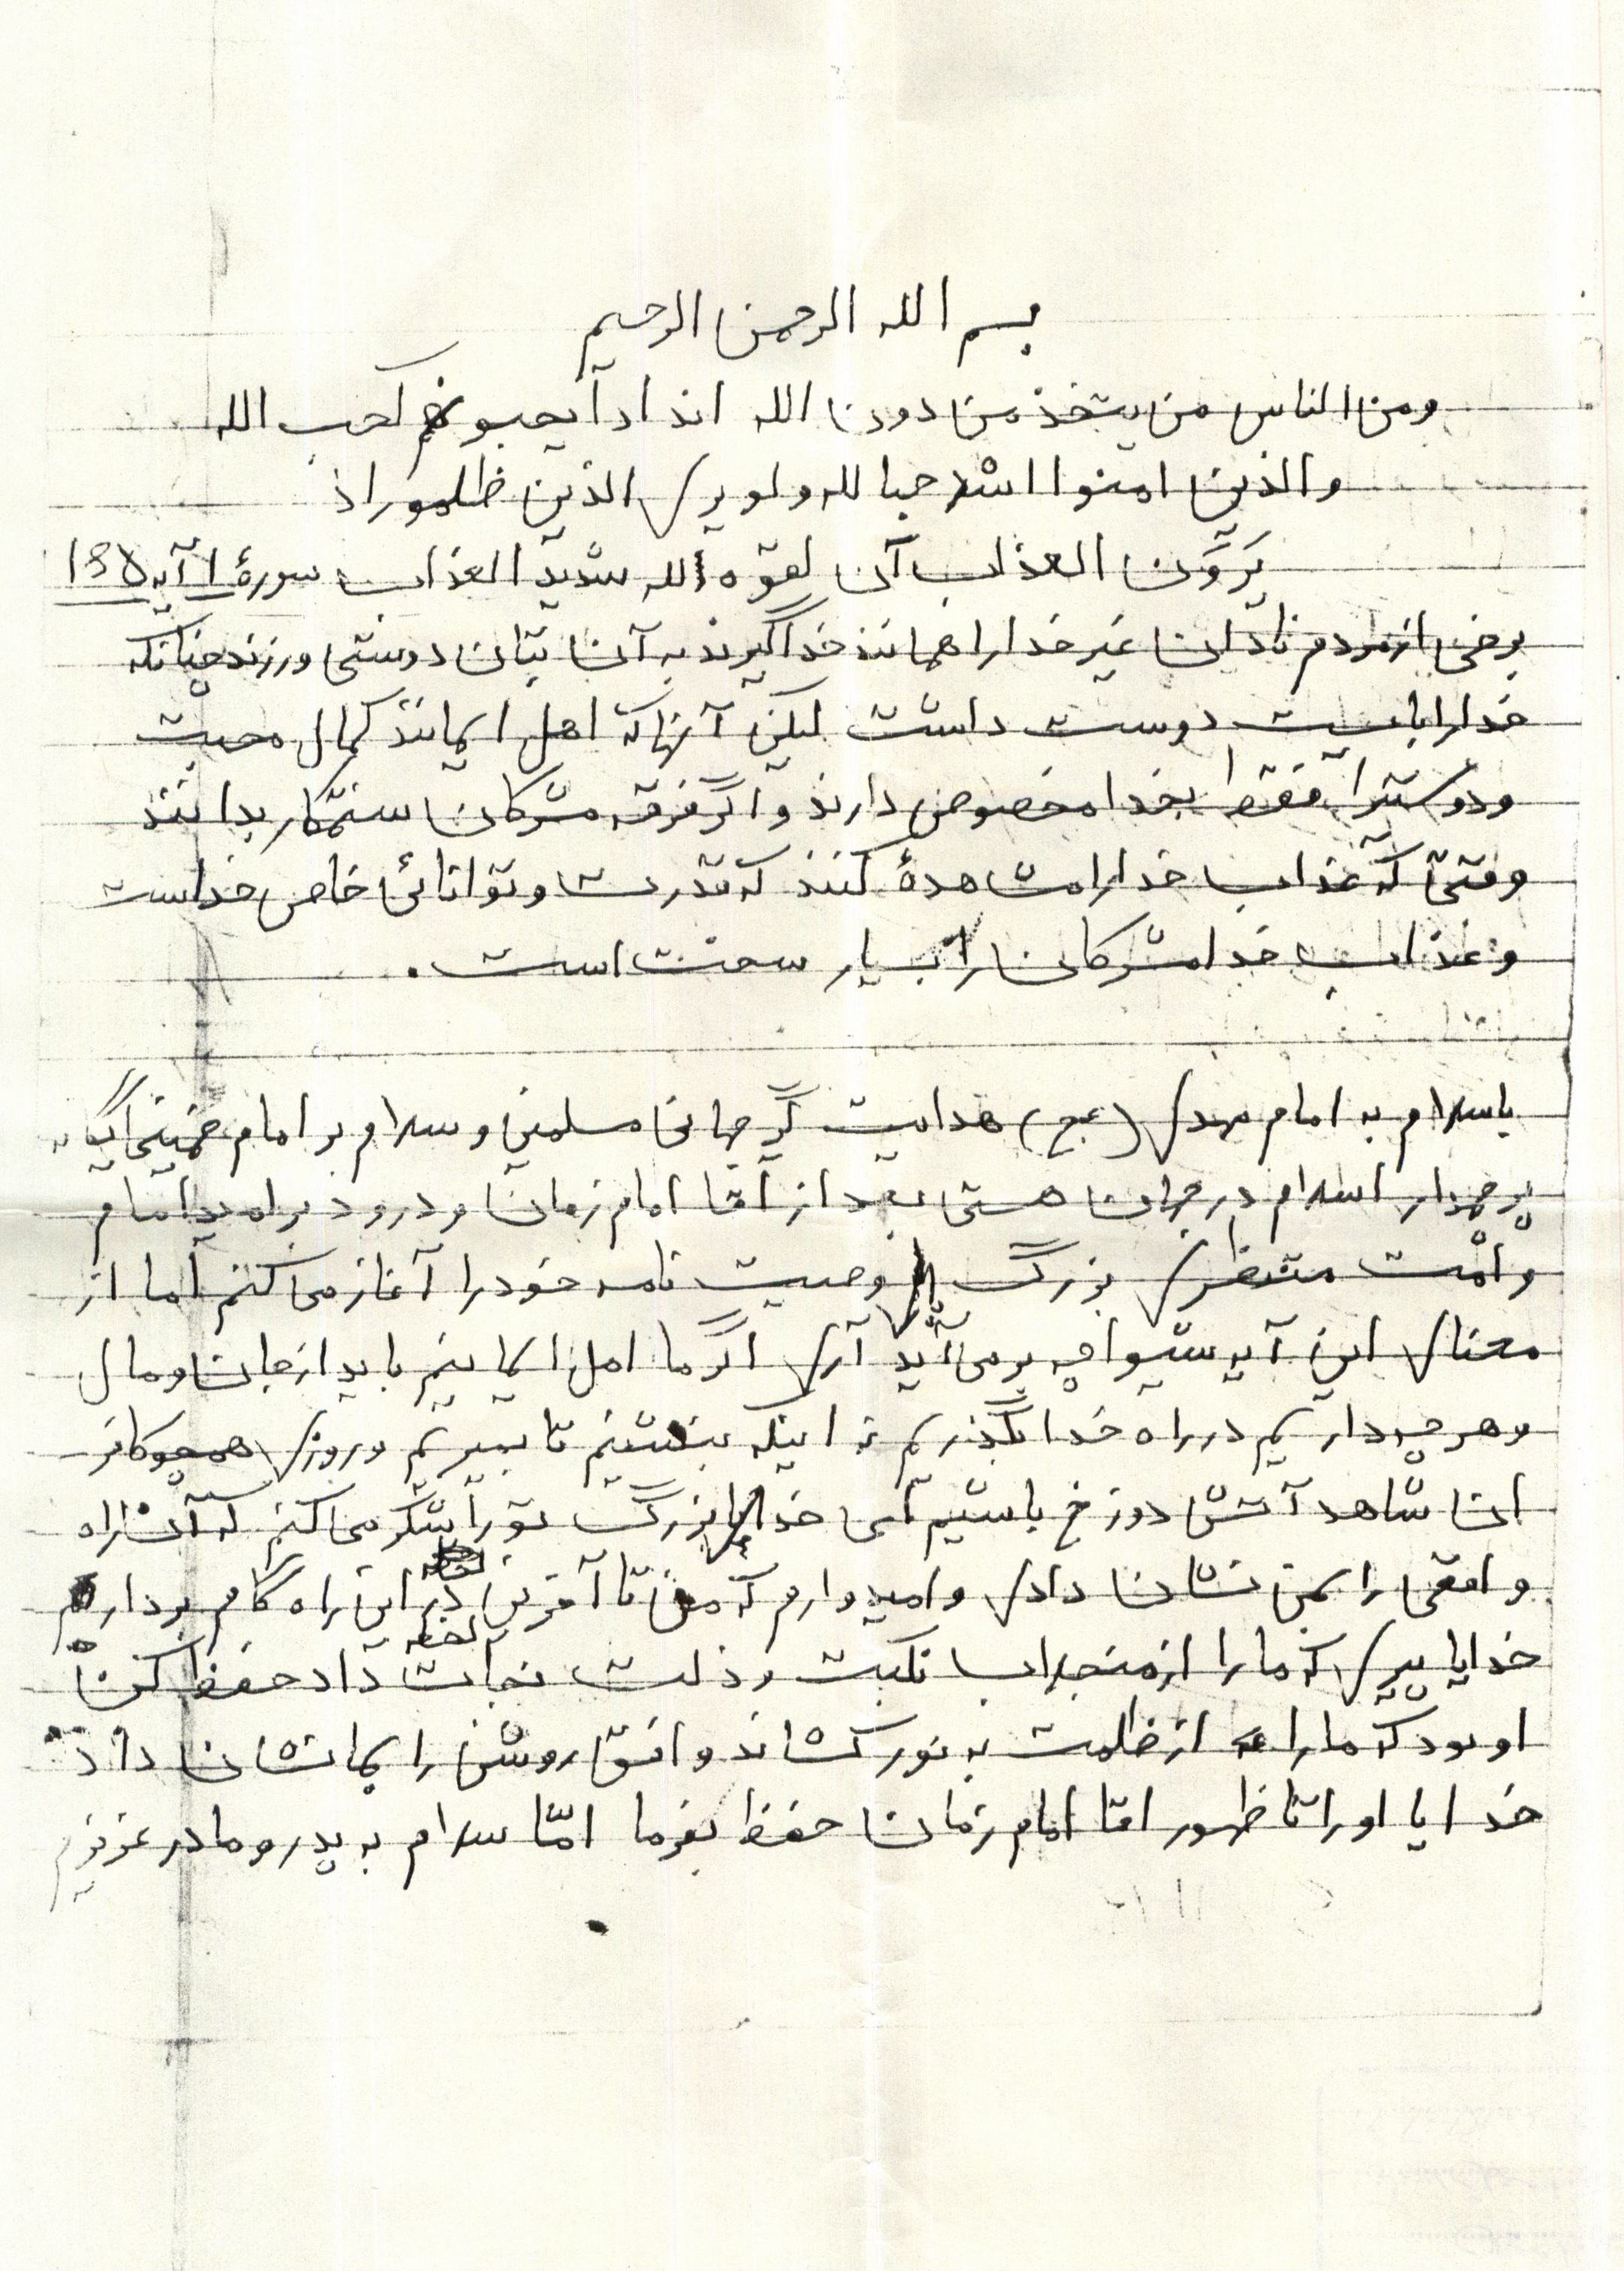 بسم الله الرحمن الرحیم
ومن الناس من یتخذ من دون الله انداداً یحبونهم کحب الله
والذین امنوا اشد حبا لله ولویری الذین ظلموراذ
یَرَوَن العذاب آن لقوه الله شدید العذاب سورهٔ ۱ آیه
برخی از مردم نادان غیر خدا را همانند خدا گیرند به آن بتان دوستی ورزند چنانکه
خدا را بایست دوست داشت لیکن آنها که اهل ایمانند کمال محبت
ودوستی را فقط بخدا مخصوص دارند و اگر فرقه مشرکان ستمکار بدانند
وقتی که عذاب خدا را مشاهدهٔ کنند که قدرت و توانائی خاص خداست
و عذاب خدا مشرکان را بسیار سخت است.
باسلام به امام مهدی (عج) هدایت گر جهانی مسلمین و سلام بر امام خمینی یگانه
پرچمدار اسلام در جهان هستی بعد از آقا امام زمان و درود بر امید امام
و امت منتظری بزرگ وصیت نامه خود را آغاز می کنم اما از
معنای این آیه شیوا چه برمی آید آری اگر ما اهل ایمانیم باید از جان و مال
و هر چه داریم در راه خدا بگذریم نه اینکه بنشینیم تا بمیریم و روزی همچو کافر
ان شاهد آتش دوزخ باشیم ای خدای بزرگ تو را شکر می کنم که آن راه
واقعی را بمن نشان دادی و امیدوارم که من تا آخرین لحظه در این راه گام بردارم
خدایا پیری که ما را از منجلاب نکبت و ذلت نجات داد حفظ کن
او بود که ما را از ظلمت به نور کشاند و افق روشن را بما نشان داد
خدایا او را تا ظهور اقا امام زمان حفظ بفرما امّا سلام به پدر و مادر عزیزم